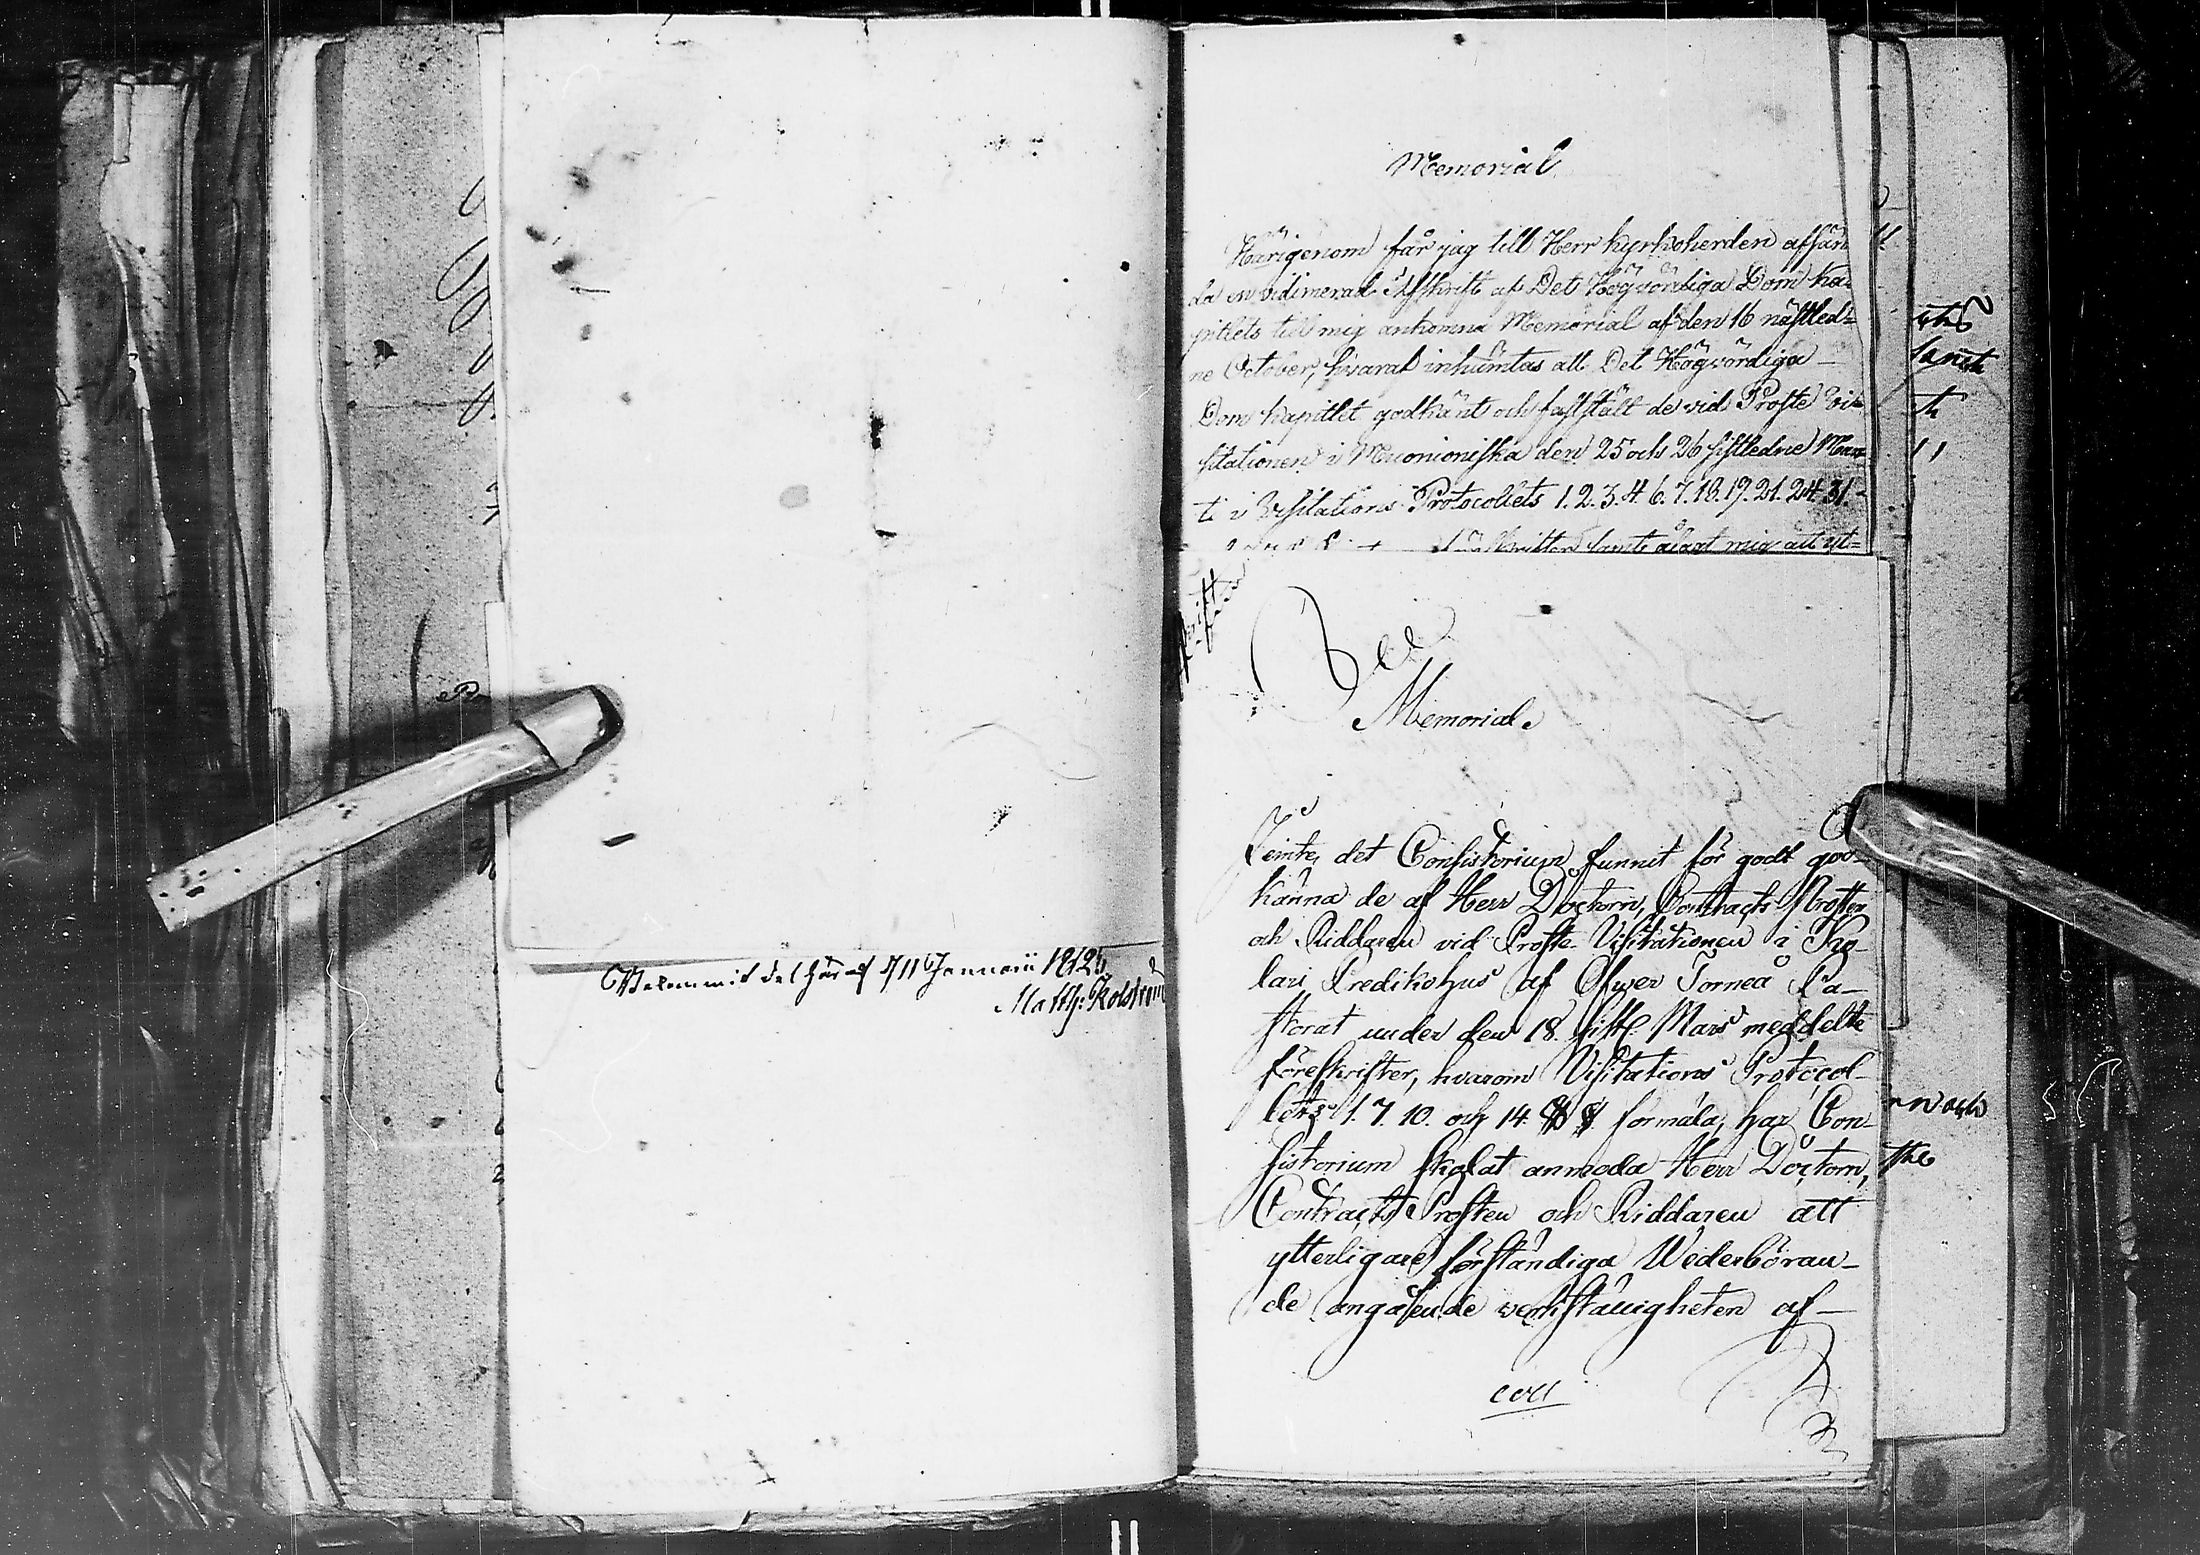 Bekommit del häraf d 11 Januarii 1825
Matth: Kolström
Memorial
Härigenom får jag till Herr Kyrkoherden afsän
da en vidimerad Afskrift af Det Högvördiga Dom ka
pitlets till mig ankomna Memorial af den 16 nästled=
ne October, hvaraf inhämtas att Det Högvördiga
Dom kapitlet godkänt och fastställt de vid Proste Vi=
sitationen i Muonioniska den 25 och 26 sistledne Mar
ti i Visitations Protocollets 1. 2. 3. 4. 6. 7. 18. 19. 21. 24. 31.
samt ålagt mig att yt=
Afskrift
Memorial.
Jemte det Consistorium funnit för godt god-
känna de af Herr Doctorn, Contracts Prosten
och Riddaren vid Proste Visitationen i Ko-
lari Predikohus af Öfwer Torneå Pa-
storat under den 18. sistl. Mars meddelte
föreskrifter, hvarom Visitations Protocol-
lets 1. 7. 10. och 14. §§. förmäla, har Con-
sistorium skolat anmoda Herr Doctorn,
Contracts Prosten och Riddaren att
ytterligare förständiga Wederböran-
de angående verkställigheten af